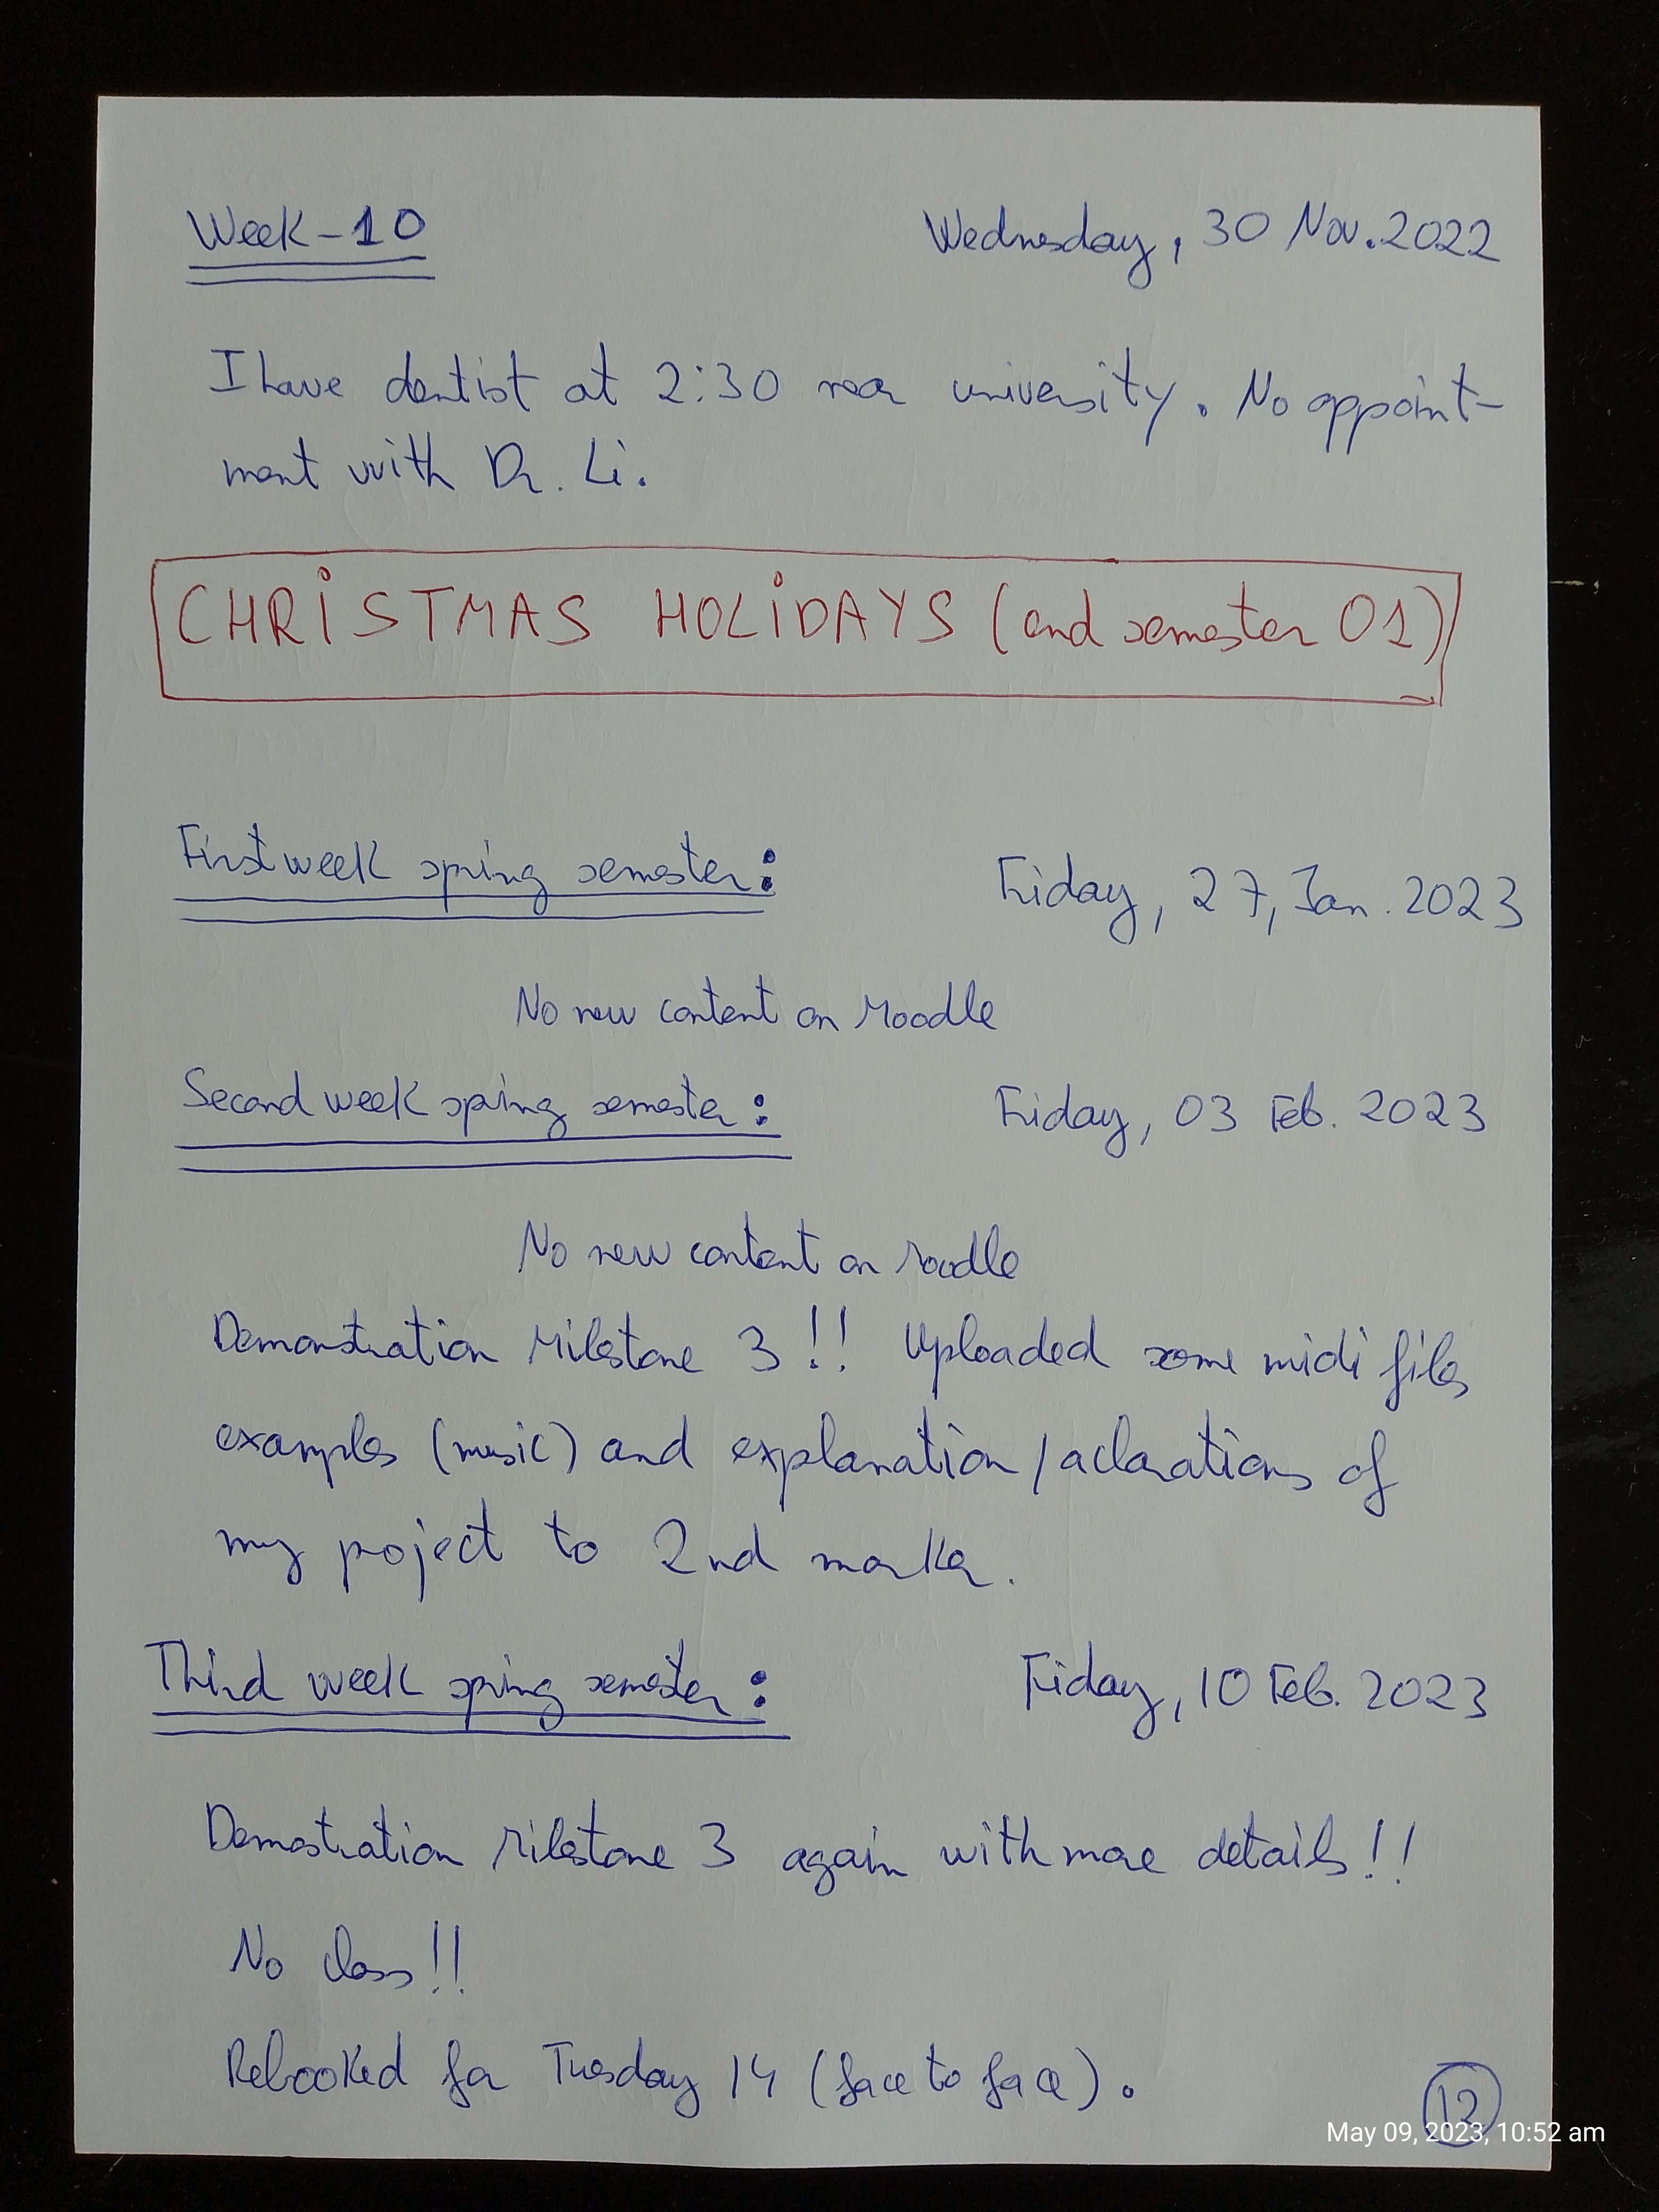 Week-10
Wednesday, 30 Nov. 2022
I have dentist at 2:30 near university. No appoint-
ment with Dr. Li.
CHRISTMAS HOLIDAYS (end semester 01)
First week spring semester:
Friday, 27, Jan. 2023
No new content on Moodle
Second week spring semester:
Friday, 03 Feb. 2023
No new content on Moodle
Demonstration Milestone 3 !! Uploaded some midi files
examples (music) and explanation/aclarations of
my project to 2nd marker.
Third week spring semester:
Friday, 10 Feb. 2023
Demostration Milestone 3 again with more details!!
No class!!
Rebooked for Tuesday 14 (face to face).
12
May 09, 2023, 10:52 am